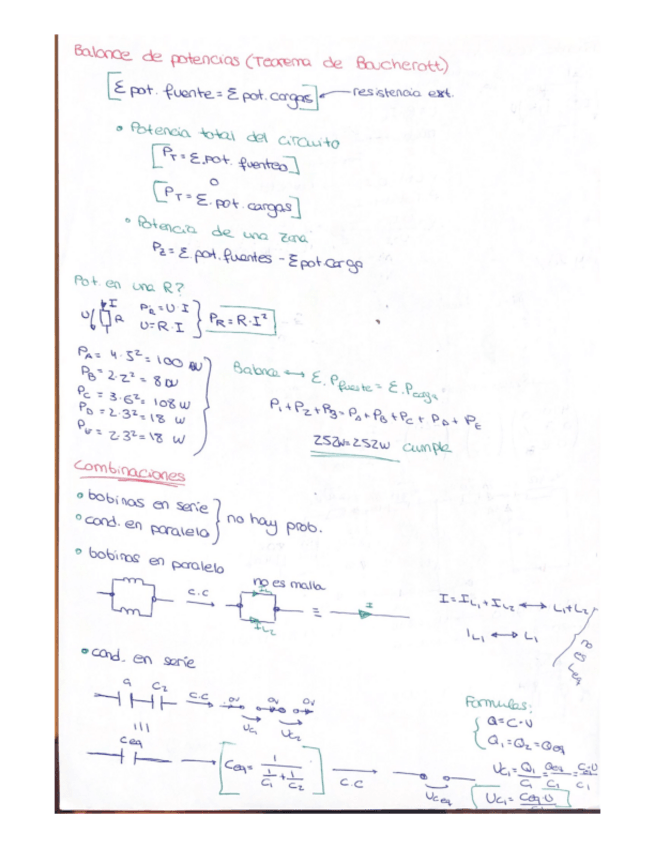 Balance de potencias (Teorema de Boucherott)
[Σ pot. fuente = Σ pot. cargas] ← resistencia ext.
• Potencia total del circuito
[P_T = Σ.pot. fuentes]
o
[P_T = Σ.pot. cargas]
• Potencia de una zona
P_2 = Σ.pot. fuentes - Σ pot carga
Pot. en una R?
I
U R
P_R = U·I
U = R·I
P_R = R·I²
P_A = 4·5² = 100 W
P_B = 2·2² = 8 W
P_C = 3·6² = 108 W
P_D = 2·3² = 18 W
2·3² = 18 W
Balance ↔ Σ.P_fuente = Σ.P_carga
P_1+P_2+P_3 = P_A+P_B+P_C+P_D+P_E
252W = 252W cumple
Combinaciones
• bobinas en serie
• cond. en paralelo
} no hay prob.
• bobinas en paralelo
c.c →
no es malla
I_L2
≡
I
I = I_L1 + I_L2 ↔ L_1+L_2
I_L1 ↔ L_1
no es Leq
• cond. en serie
C_2
c.c →
0V 0V 0V
U_C1 U_C2
Ceq
[Ceq = 1 / (1/C_1 + 1/C_2)]
c.c
U_Ceq
Formulas:
Q = C·U
Q_1 = Q_2 = Qeq
U_C1 = Q_1/C_1 = Qeq/C_1 = C·U/C_1
U_C1 = Ceq·U